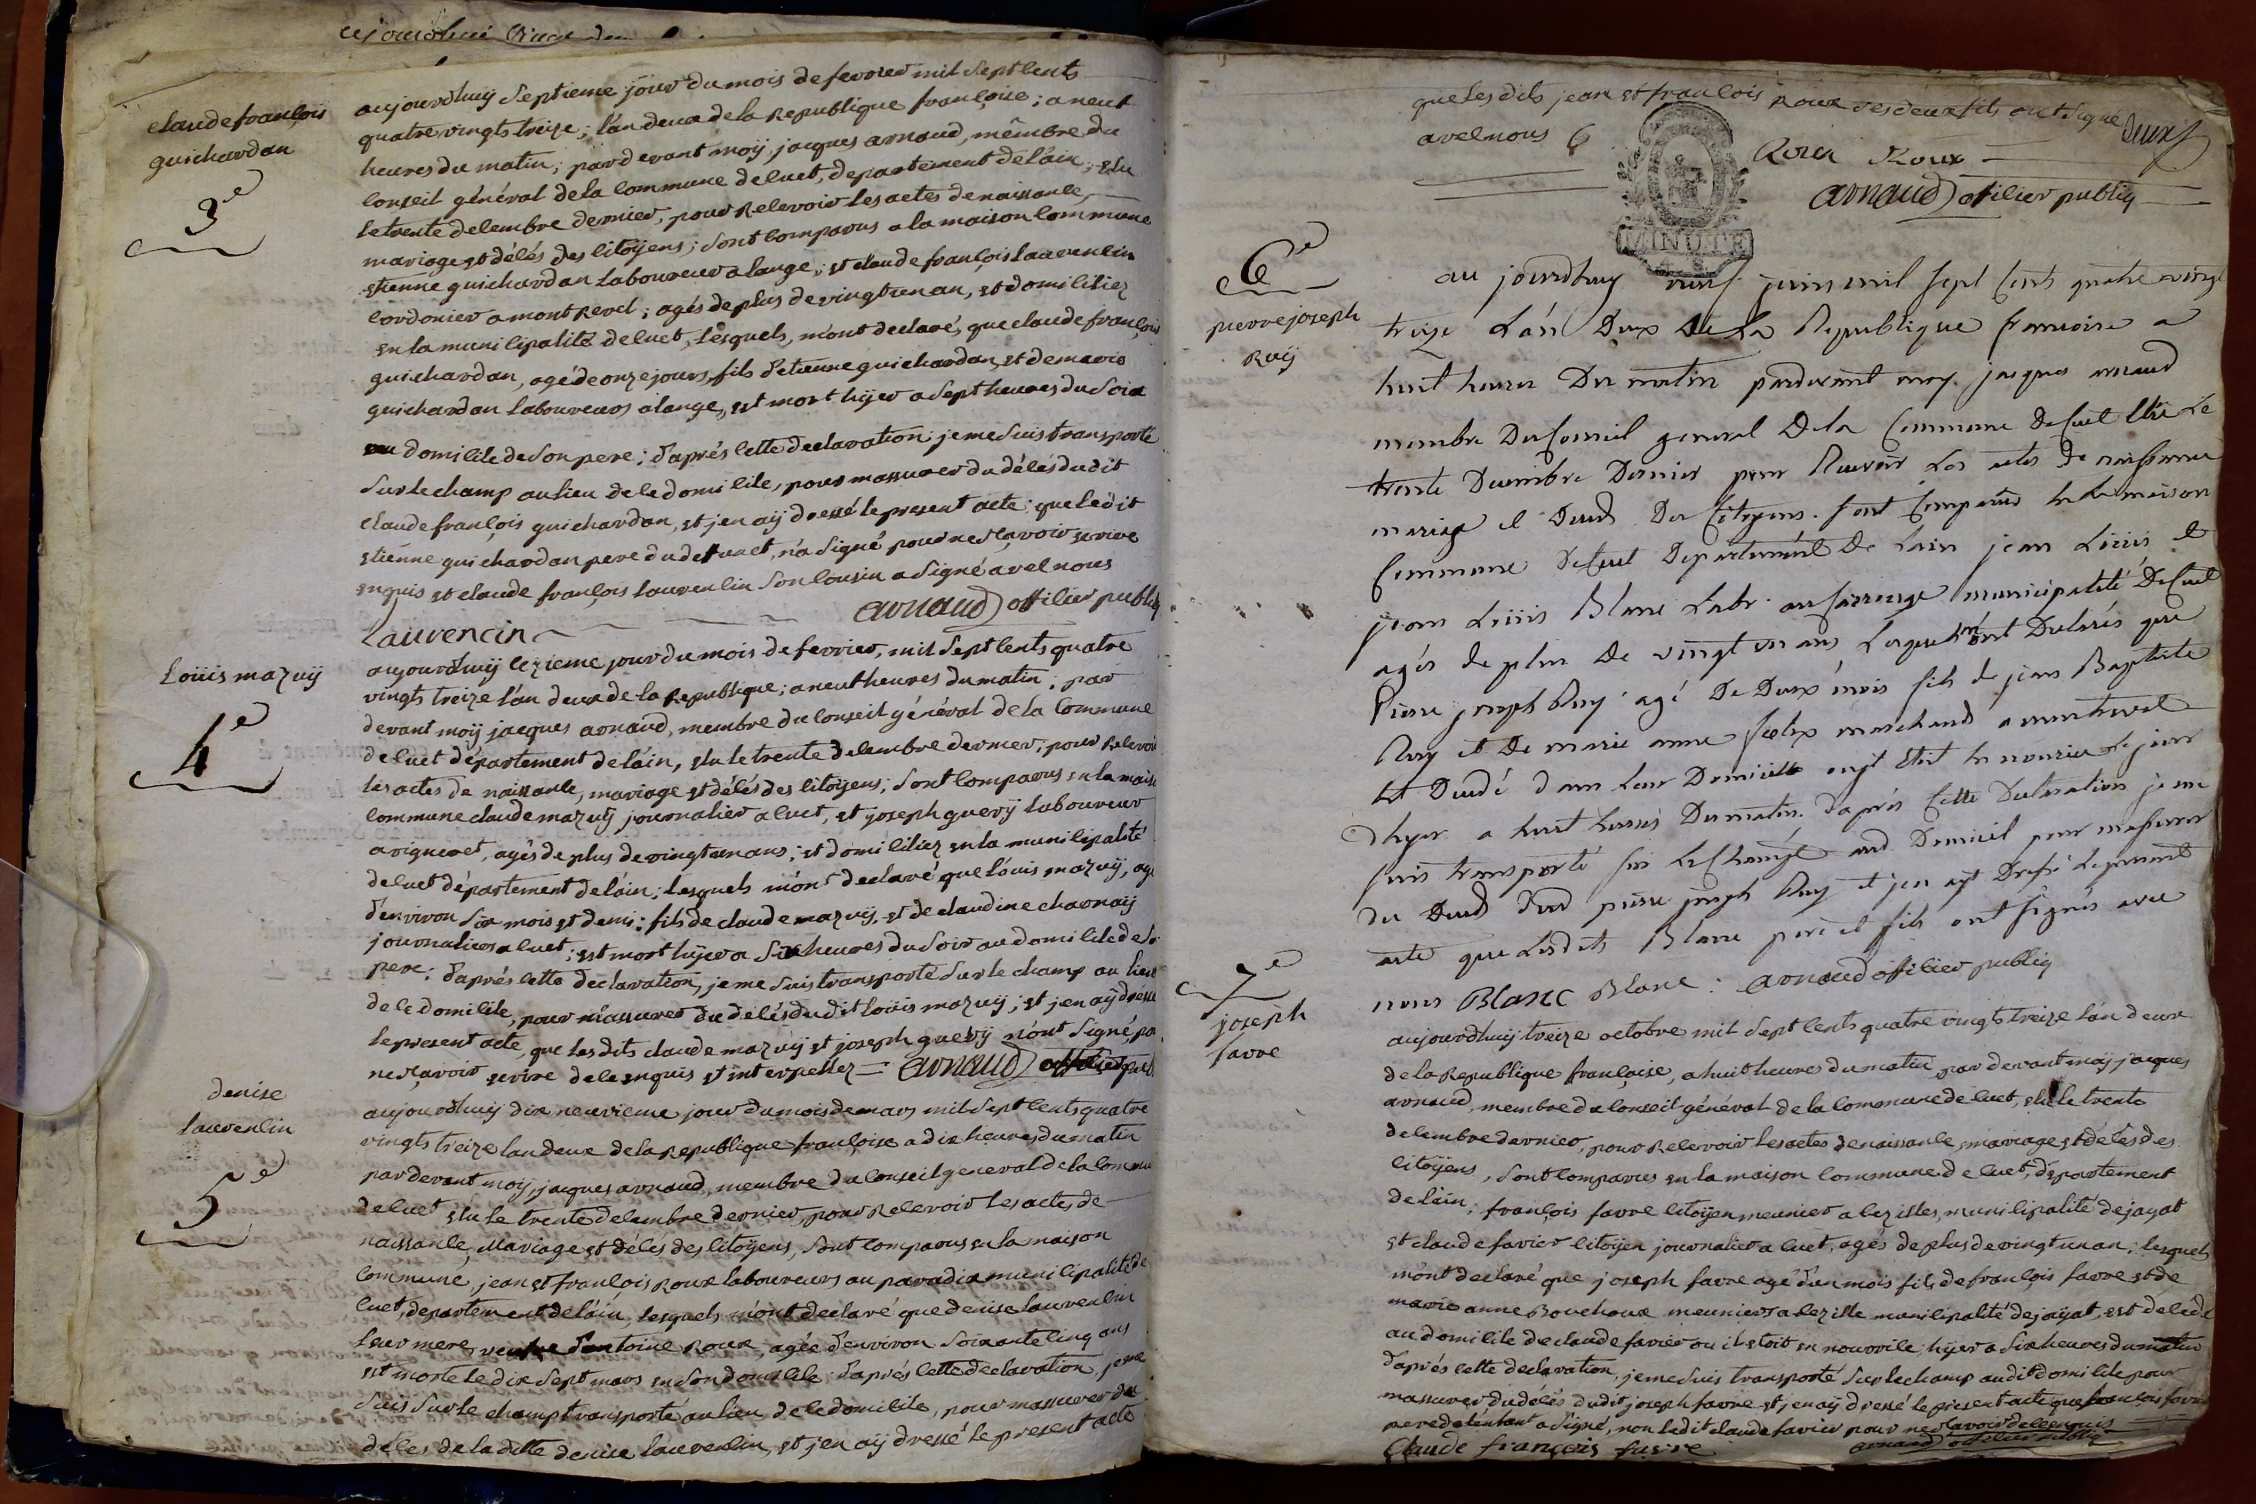 aujourdhui
claude françois
guichardan
3e
aujourdhuy septieme jour du mois de fevrier mil sept cents
quatre vingts treize ; l'an deux de la Republique françoise ; a neuf
heures du matin ; pardevant moÿ jacques arnaud, membre du
conseil général de la commune de cuet, departement de l'ain ; élu
le trente decembre dernier, pour Recevoir les actes de naissance,
mariage et décés des citoÿens ; sont comparus a la maison commune
etienne guichardan laboureur a lange, et claude françois lauvencin
cordonier a montrevel ; agés de plus de vingt un an, et domiciliez
en la municipalité de cuet, lesquels, m'ont declaré, que claude françois
guichardan, agé de onze jours, fils d'etienne guichardan, et de marie
guichardan laboureurs a lange, est mort hÿer a sept heures du soir
au domicile de son pere ; d'aprés cette declaration je me suis transporté
sur le champ au lieu de ce domicile, pour massurer du décés du dit
claude françois guichardan, et j'en aÿ dressé le present acte ; que le dit
etienne guichardan pere du defunct, n'a signé pour ne sçavoir ecrire
enquis et claude françois lauvencin son cousin a signé avec nous
Lauvencin arnaud officier public
Loüis mazuÿ
4e
aujourdhuÿ sezieme jour du mois de fevrier, mil sept cents quatre
vingts treize l'an deux de la Republique ; a neuf heures du matin ; par
devant moÿ jacques arnaud, membre du conseil général de la commune
de cuet département de l'ain, élu le trente decembre dernier, pour Recevoir
les actes de naissance, mariage et décés des citoÿens ; sont comparus en la maison
commune claude mazuÿ journalier a cuet, et joseph guerÿ laboureur
a vigneret, agés de plus de vingt un ans ; et domiciliez en la municipalité
de cuet département de l'ain ; lesquels m'ont declaré que loüis mazuÿ, agé
d'environ six mois et demi ; fils de claude mazuÿ, et de claudine charnaÿ
journaliers a cuet ; est mort hÿer a six heures du soir au domicile de so
pere ; d'aprés cette declaration, je me suis transporté sur le champ au lieu
de ce domicile, pour m'assurer du décés du dit loüis mazuÿ ; et j'en aÿ dressé
le present acte, que les dits claude mazuÿ et joseph guerÿ n'ont signé, po
ne sçavoir ecrire de ce enquis et interpellez = arnaud officier public
denise
lauvencin
5e
aujourdhuÿ dix neuvieme jour du mois de mars mil sept cents quatre
vingts treize lan deux de la Republique françoise a dix heures du matin
par devant moÿ, jacques arnaud, membre du conseil general de la commune
de cuet élu le trente decembre dernier, pour Recevoir les actes de
naissance, Mariage et décés des citoÿens, sont comparus en la maison
commune, jean et françois roux laboureurs au paradix municipalité de
cuet, departement de l'ain, lesquels m'ont declaré que denise lauvencin
leur mere, veuve d'antoine Roux, agée d'environ soixante cinq ans
est morte le dix sept mars en son domicile d'aprés cette declaration, je me
suis sur le champ transporté au lieu de ce domicile, pour massurer du
déces de la ditte denise lauvencin, et j'en aÿ dressé le present acte
que les dits jean et françois Roux ses deux fils ont signe
avec nous
deux
Roux Roux
arnaud officier public
MINUTE
6e
pierre joseph
Ruÿ
au jourdhuy neuf juin mil sept Cents quatre vingt
treize L'an Deux De La Republique francoise a
huit heures Du matin pardevant moy jacques arnaud
membre Du Conseil general De la Commune De Cuet Elu Le
trente Decembre Dernier pour Recevoir Les actes de naissance
mariage et Deces Des Citoyens. sont Comparus en la maison
Commune De Cuet Departement De Lain jean Louis et
jean Louis Blanc Labr. au municipalité De Cuet
agés de plus De vingt un ans Lesquels m'ont Declarés que
Pierre joseph Ruy agé De Deux mois fils de jean Baptiste
Ruy et De marie anne marchands a montrevel
Est Decedé dans Leur Domicile ou il Etoit en nourice Le jour
d'hyer a huit heures Du matin. D'aprés Cette Declaration je me
suis transporté sur Le Champ aud. Domicil pour massurer
Du Deces Dud pierre joseph Ruy et j'en ayt Dressé Le present
acte que Lesdits Blanc pere et fils ont signés avec
nous Blanc Blanc : arnaud officier public
7e
joseph
favre
aujourdhuÿ treize octobre mil sept cents quatre vingts treize l'an deux
de la Republique françoise, a huit heures du matin, par devant moÿ jacques
arnaud, membre du conseil général de la commune de cuet, élu le trente
decembre dernier, pour Recevoir les actes de naissance, mariage et décés des
citoÿens, sont comparus en la maison commune de cuet, département
de l'ain ; françois favre citoÿen meunier a lezilles, municipalité de jayat
et claude favier citoÿen journalier a cuet, agés de plus de vingt un an ; lesquels
m'ont declaré que joseph favre agé d'un mois fils de françois favre et de
marie anne Bouchoux meuniers a lezille municipalité de jayat, est decedé
au domicile de claude favier ou il etoit en nourice, hÿer a six heures du matin
d'aprés cette declaration, je me suis transporté sur le champ au dit domicile pour
massurer du décés du dit joseph favre et j'en aÿ dressé le present acte que françois favre
pere de l'enfant a signé, non le dit claude favier pour ne sçavoir de ce enquis
Claude françois favre arnaud officier public